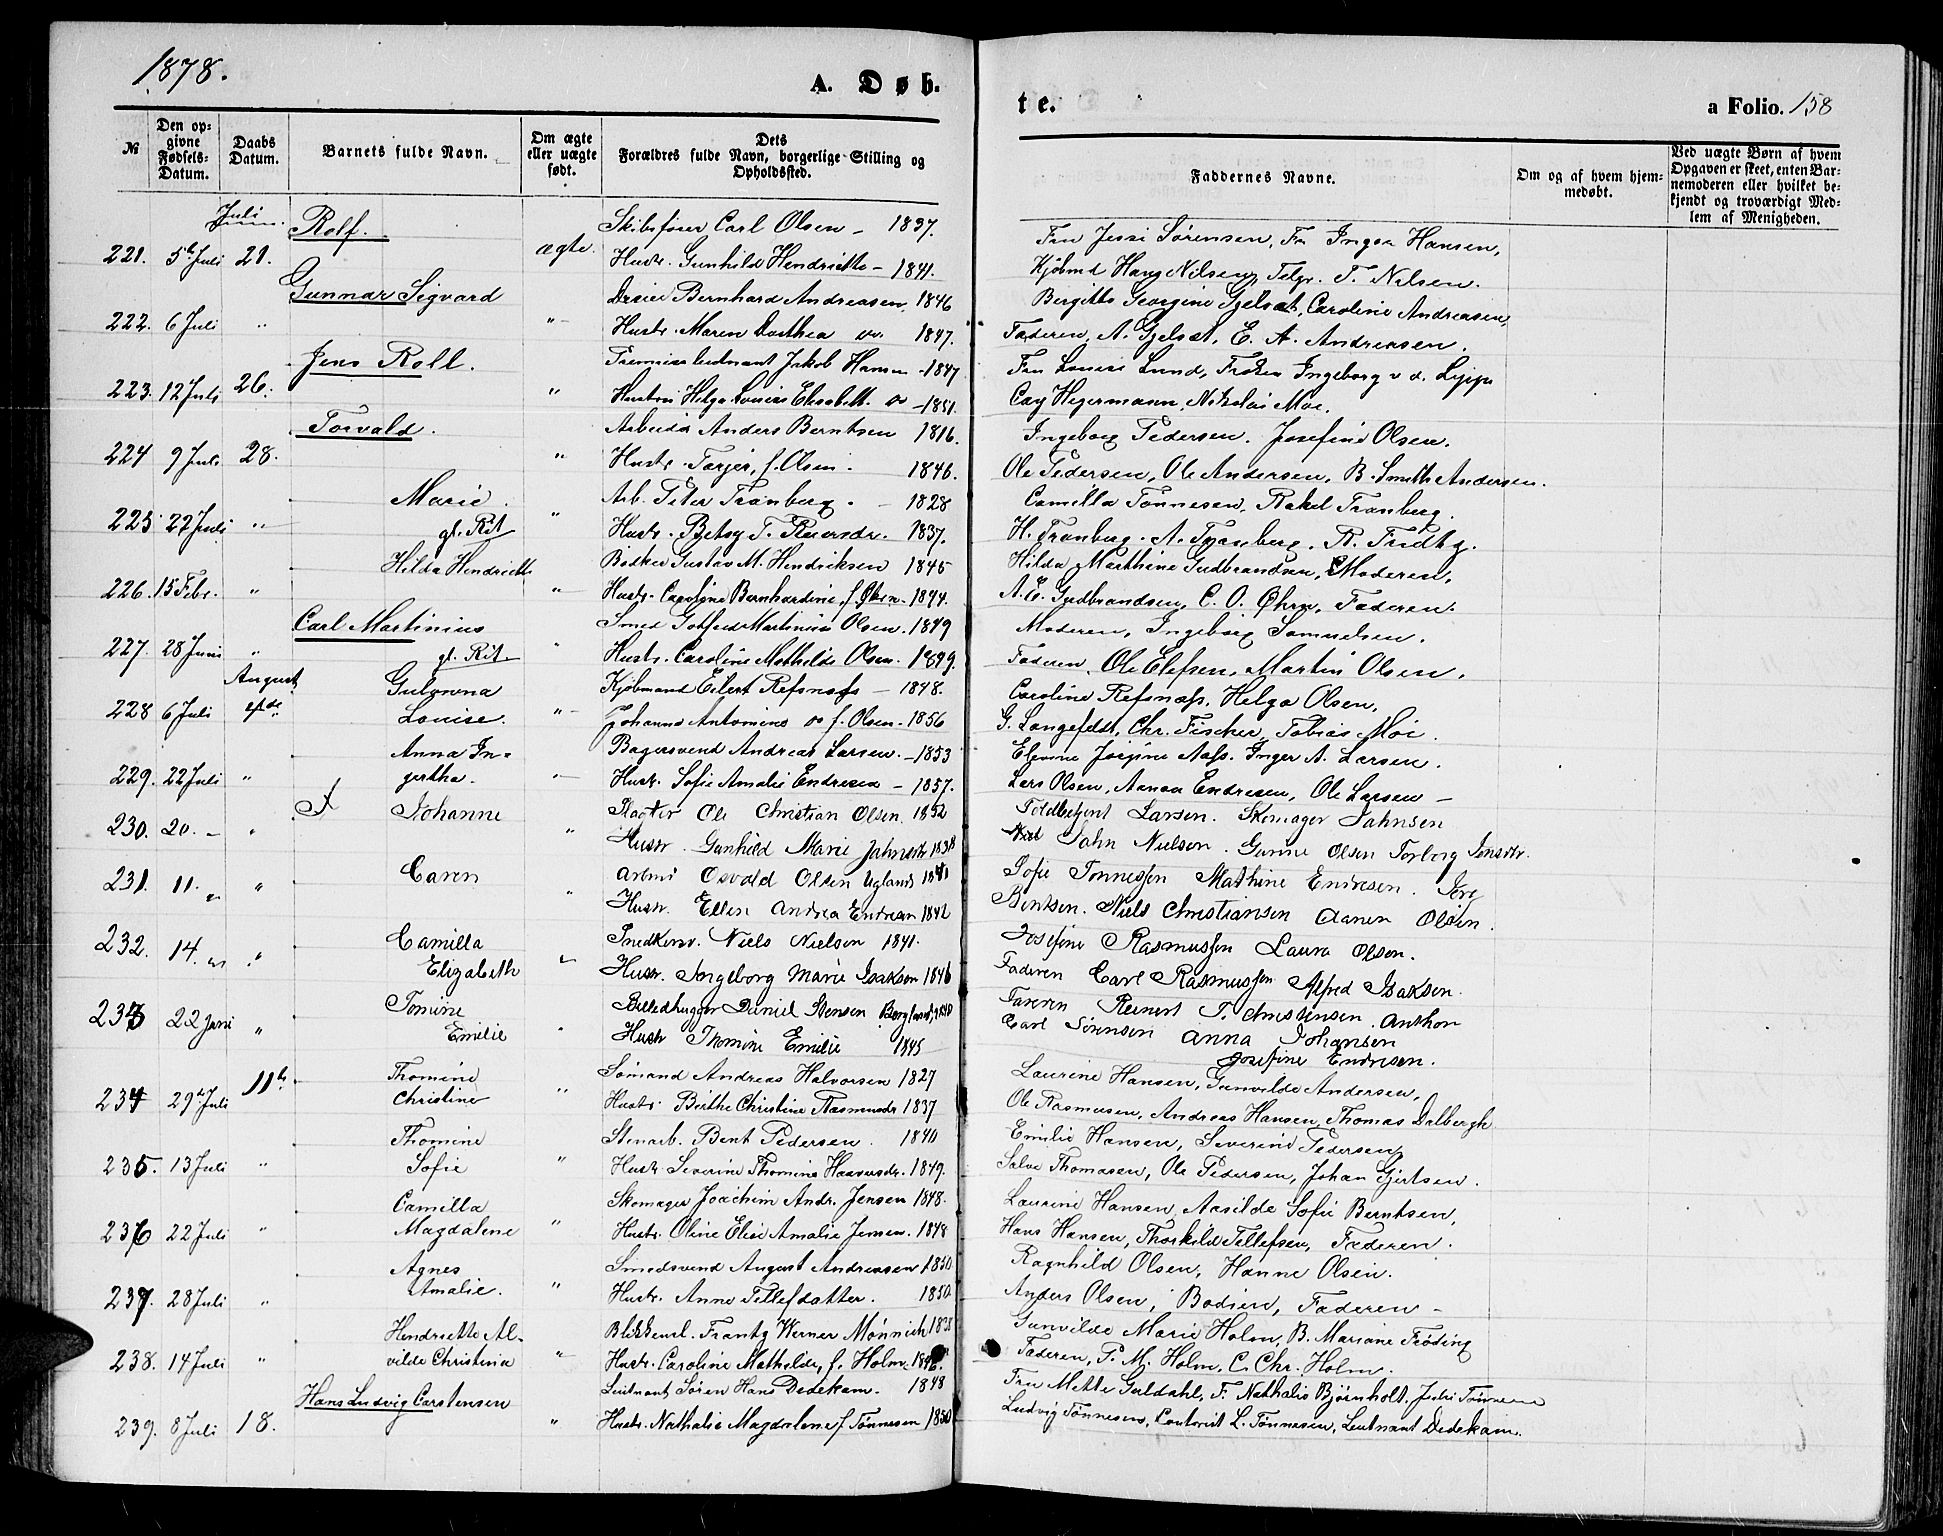 1878.
A. Døb.
№
Den op-
givne
Fødsels-
Datum.
Daabs
Datum.
Barnets fulde Navn.
Om ægte
eller uægte
født.
Dets
Forældres fulde Navn, borgerlige Stilling og
Opholdssted.
Juli
Rolf. Skibsfører Carl Olsen - 1837.
221. 5te Juli 21. ægte. Hustr. Gunhild Hendriette - 1841.
Gunnar Sigvard Bernhard Andreasen, 1846
222. 6 Juli " " Hustr. Maren Dorthea 1847.
Jens Roll. Premierleutnant Jakob Hansen - 1847
223. 12 Juli 26. " Hustru Helga Louise Elisabett. - 1851.
Torvald. Arbeider Anders Berntsen 1816.
224 9 Juli 28. " Hustr. Torjer, f. Olsen. 1846.
Marie. Arb. Peter Tranberg. - 1828
225. 22 Juli " gl. Rit " Hustr. Betsy T. Reiersdr. 1837.
Hilda Hendriette Bødker Gustav M. Hendriksen 1845
226. 15 Febr. " " Hustr. Caroline Bernhardine, f. Øhrn. 1844.
Carl Martinius Smed Gotfred Martinius Olsen. 1849
227. 28 Juni " gl. Rit. " Hustr. Caroline Mathilde Olsen. 1849.
August Gulowna Kjøbmand Eilert Refsnæss - 1848.
228 6 Juli 4de Louise. " Johanne Antomine f. Olsen. 1856
Anna In- Bagersvend Andreas Larsen. - 1853
229. 22 Juli " gertha. " Hustr. Sofie Amalie Endresen - 1857.
Johanne Slagter Ole Christian Olsen 1852
230. 20. - " " Hustr. Gunhild Marie Jahnsdtr 1838
231. 11. " " Caren Arbmd Osvald Olsen Ugland 1841
" Hustr. Ellen Andrea Endresen 1842
232. 14. " " Camilla Snedkersv. Niels Nielsen 1841.
Elizabeth " Hustr. Ingeborg Marie Isaksen 1846
233 22 Juni " Tomine Billedhugger Daniel Stensen Bergland, 1840
Emilie " Hustr Thomine Emilie 1845
Thomine Sømand Andreas Halvorsen 1827
234 29de Juli 11te Christine " Hustr. Birthe Christine Rasmusdr 1837
Thomine Stenarb. Bent Pedersen. 1840
235. 13 Juli " Sofie " Hustr Severine Thomine Haaversdr. 1849.
Camilla Skomager Joachim Andr. Jensen 1848.
236 22 Juli " Magdalene " Hustr. Oline Elise Amalie Jensen. 1848
Agnes Smedsvend August Andreasen 1850
237. 28 Juli " Amalie. " Hustr. Anne Tellefdatter. 1850
Hendriette Al- Blikkensl. Frantz Werner Mønnich 1838
238. 14 Juli " vilde Christina " Hustr. Caroline Mathilde, f. Holm. 1846.
Hans Ludvig Carstensen Leutnant Søren Hans Dedekam. 1848
239. 8 Juli 18. " Hustr. Nathalie Magdalene f Tønnesen 1850
te.
a Folio. 158
Faddernes Navne.
Om og af hvem hjem-
medøbt.
Ved uægte Børn af hvem
Opgaven er skeet, enten Bar-
nemoderen eller hvilket be-
kjendt og troværdigt Med-
lem af Menigheden.
Fru Jessi Sørensen, Fr Inger Hansen,
Kjøbmd Hans Nilsen, Telgr. T. Nilsen.
Bergitte Georgine Gjelset, Caroline Andreasen,
Faderen, A. Gjelset, E. A. Andreasen.
Fru Louise Lund, Frøken Ingeborg v d. Lippe
Cay Hegermann, Nikolai Moe.
Ingeborg Pedersen. Josefine Olsen.
Ole Pedersen, Ole Andersen, B. Smith Andersen.
Camilla Tønnesen, Rakel Tranberg.
H. Tranberg. A. Tranberg. R. Fredbg.
Hilda Marthine Gudbrandsen, Moderen,
A. E. Gudbrandsen, C. O. Øhrn, Faderen.
Moderen, Ingeborg Samuelsen.
Faderen, Ole Elefsen, Martin Olsen,
Caroline Refsnæss, Helga Olsen,
G. Langefeldt, Chr. Fischer, Tobias Moe.
Elevine Jørgine Aass. Inger A. Larsen.
Lars Olsen, Aanon Endresen, Ole Larsen -
Toldbetjent Larsen. Skomager Jahnsen
John Nielsen. Gurine Olsen Torborg Jensdtr.
Sofie Tønnessen Mathine Endresen. Jere
Bentsen. Niels Christiansen Aanen Olsen.
Josefine Rasmussen Laura Olsen.
Faderen Carl Rasmussen Alfred Isaksen.
Faderen Reinert T. Christensen. Anthon
Carl Sørensen Anna Johansen
Josefine Endresen.
Laurine Hansen, Gunvilde Andersen,
Ole Rasmusen, Andreas Hansen, Thomas Dalbergh
Emilie Hansen, Severine Pedersen,
Salve Thomasen, Ole Pedersen, Johan Gjertsen.
Laurine Hansen, Aasilde Sofie Berntsen,
Hans Hansen, Thorkild Tellefsen, Faderen.
Ragnhild Olsen, Hanne Olsen.
Anders Olsen, Bodsen, Faderen -
Gunvilde Marie Holm, B. Mariane Frøding
Faderen, P. M. Holm, C. Chr. Holm.
Fru Mette Guldahl, F. Nathalie Bjørnholt. Julie Tønnesen
Ludvig Tønnesen, L. Tønnesen, Leutnant Dedekam.